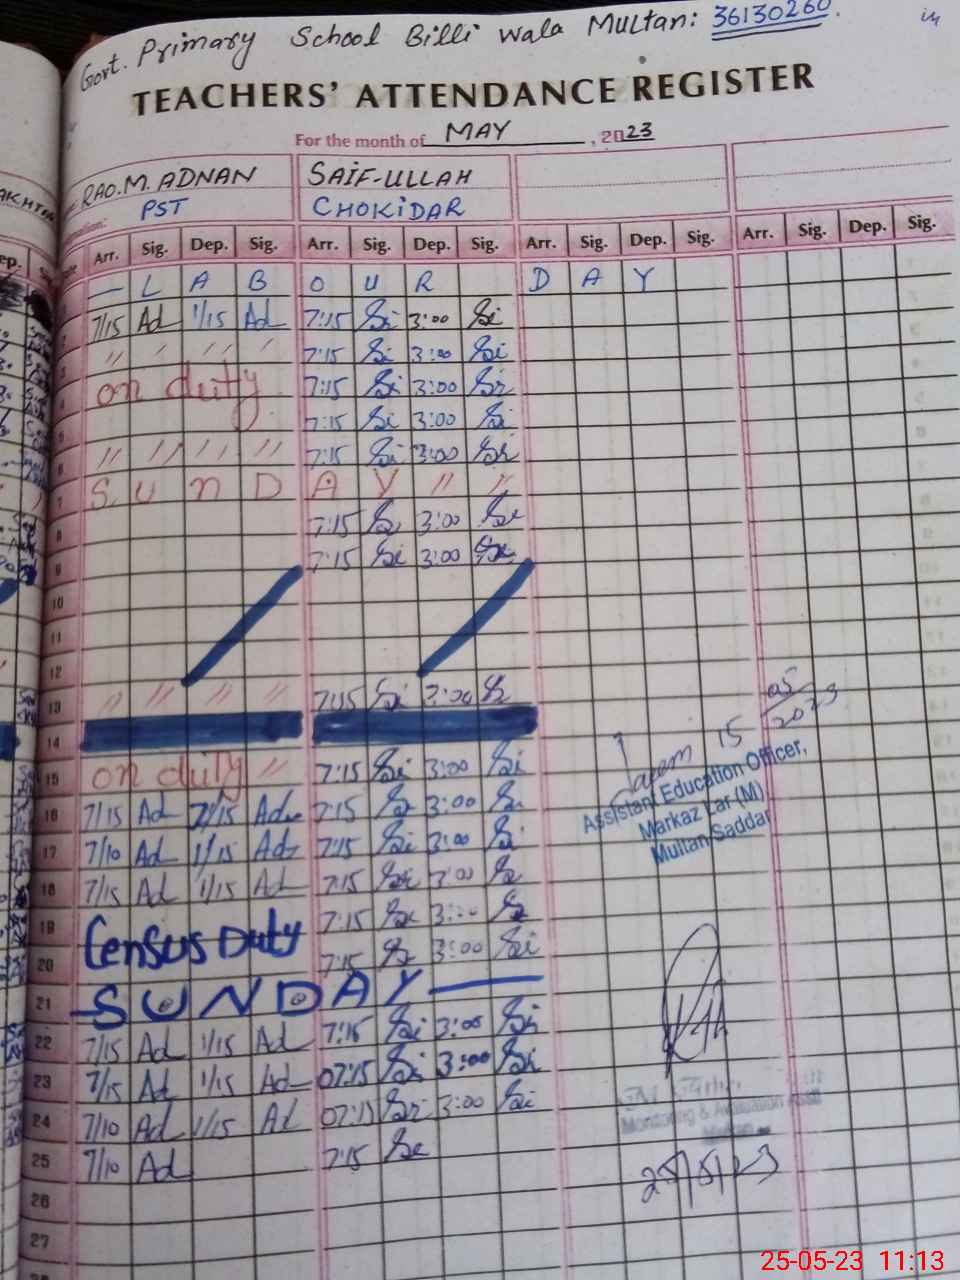 Govt. Primary School Billi Wala Multan: 36130260.
TEACHERS' ATTENDANCE REGISTER
For the month of MAY, 2023
RAO.M. ADNAN SAIF-ULLAH
PST CHOKIDAR
Arr. Sig. Dep. Sig. Arr. Sig. Dep. Sig. Arr. Sig. Dep. Sig. Arr. Sig. Dep. Sig.
— L A B O U R D A Y
2 7/15 Ad 1/15 Ad 7:15 Si 3:00 Si
3 〃 〃 〃 〃 7:15 Si 3:00 Si
4 on duty 7:15 Si 3:00 Si
5 7:15 Si 3:00 Si
6 〃 〃 〃 〃 7:15 Si 3:00 Si
7 S U N D A Y 〃 〃
8 7:15 Si 3:00 Si
9 7:15 Si 3:00 Si
10
11
12
13 〃 〃 〃 〃 7:15 Si 3:00 Si
14
15 on duty 〃 7:15 Si 3:00 Si
16 7/15 Ad 7/15 Ad 7:15 Si 3:00 Si
17 7/10 Ad 1/15 Ad 7:15 Si 3:00 Si
18 7/15 Ad 1/15 Ad 7:15 Si 3:00 Si
19 Census Duty 7:15 Si 3:00 Si
20 7:15 Si 3:00 Si
21 S U N D A Y —
22 7/15 Ad 1/15 Ad 7:15 Si 3:00 Si
23 7/15 Ad 1/15 Ad 07:15 Si 3:00 Si
24 7/10 Ad 1/15 Ad 07:15 Si 3:00 Si
25 7/10 Ad 7:15 Si
26
27
15 05/2023
Assistant Education Officer,
Markaz Lar (M)
Multan Saddar
Monitoring & Evaluation
25/5/23
25-05-23 11:13